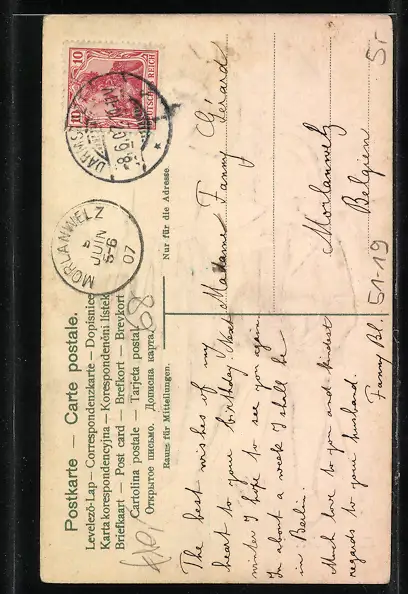 Postkarte — Carte postale.
Levelező-Lap — Correspondenzkarte — Dopisnice
Karta korespondencyjna — Korespondenční lístek
Briefkaart — Post card — Brefkort — Brevkort
Cartolina postale — Tarjeta postal
Открытое письмо. Дописна карта.
Raum für Mitteilungen.
Nur für die Adresse.
10 10
DEUTSCHES REICH
DARMST
8.6.07
MORLANWELZ
JUIN
5-6
07
68
The best wishes of my
heart to your birthday. Next
winter I hope to see you again.
In about a week I shall be
in Berlin.
Much love to you and kindest
regards to your husband.
Fanny Bl.
Madame Fanny Gérard
Morlanwelz
Belgien
51-19
5,-